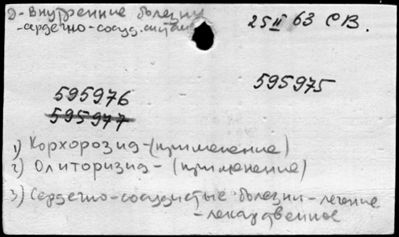 Д-Внутренние болезни
-сердечно-сосуд.
25 II 63 СВ.
595975
595976
595977
1) Корхорозид-(применение)
2) Олиторизид-(применение)
3) Сердечно-сосудистые болезни-лечение
-лекарственное